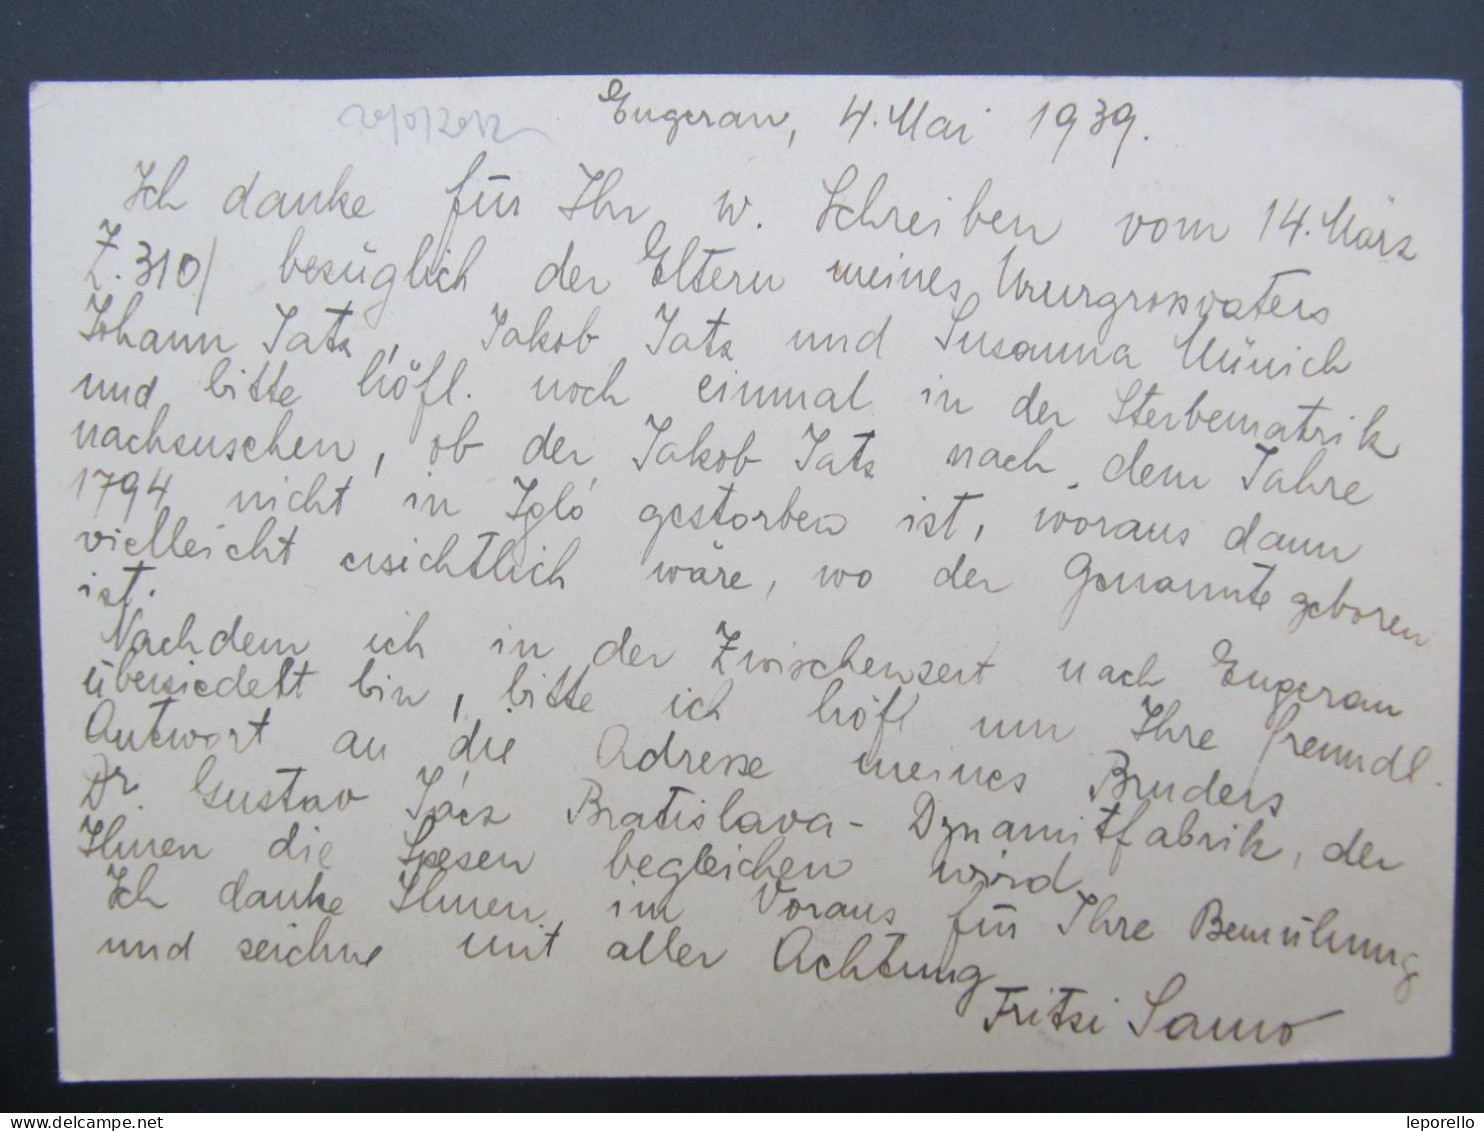 Engerau, 4. Mai 1939.
Ich danke für Ihr w. Schreiben vom 14. März
Z. 310/ bezüglich der Eltern meines Ururgrossvaters
Johann Jatz, Jakob Jatz und Susanna Münich
und bitte höfl. noch einmal in der Sterbematrik
nachsuschen, ob der Jakob Jatz nach dem Jahre
1794 nicht in Igló gestorben ist, woraus dann
vielleicht ersichtlich wäre, wo der Genannte geboren
ist.
Nachdem ich in der Zwischenzeit nach Engerau
übersiedelt bin, bitte ich höfl um Ihre freundl.
Antwort an die Adresse meines Bruders
Dr. Gustav Jácz Bratislava - Dynamitfabrik, der
Ihnen die Spesen begleichen wird.
Ich danke Ihnen im Voraus für Ihre Bemühung
und zeichne mit aller Achtung
Fritzi Samo
delcampe.net
leporello